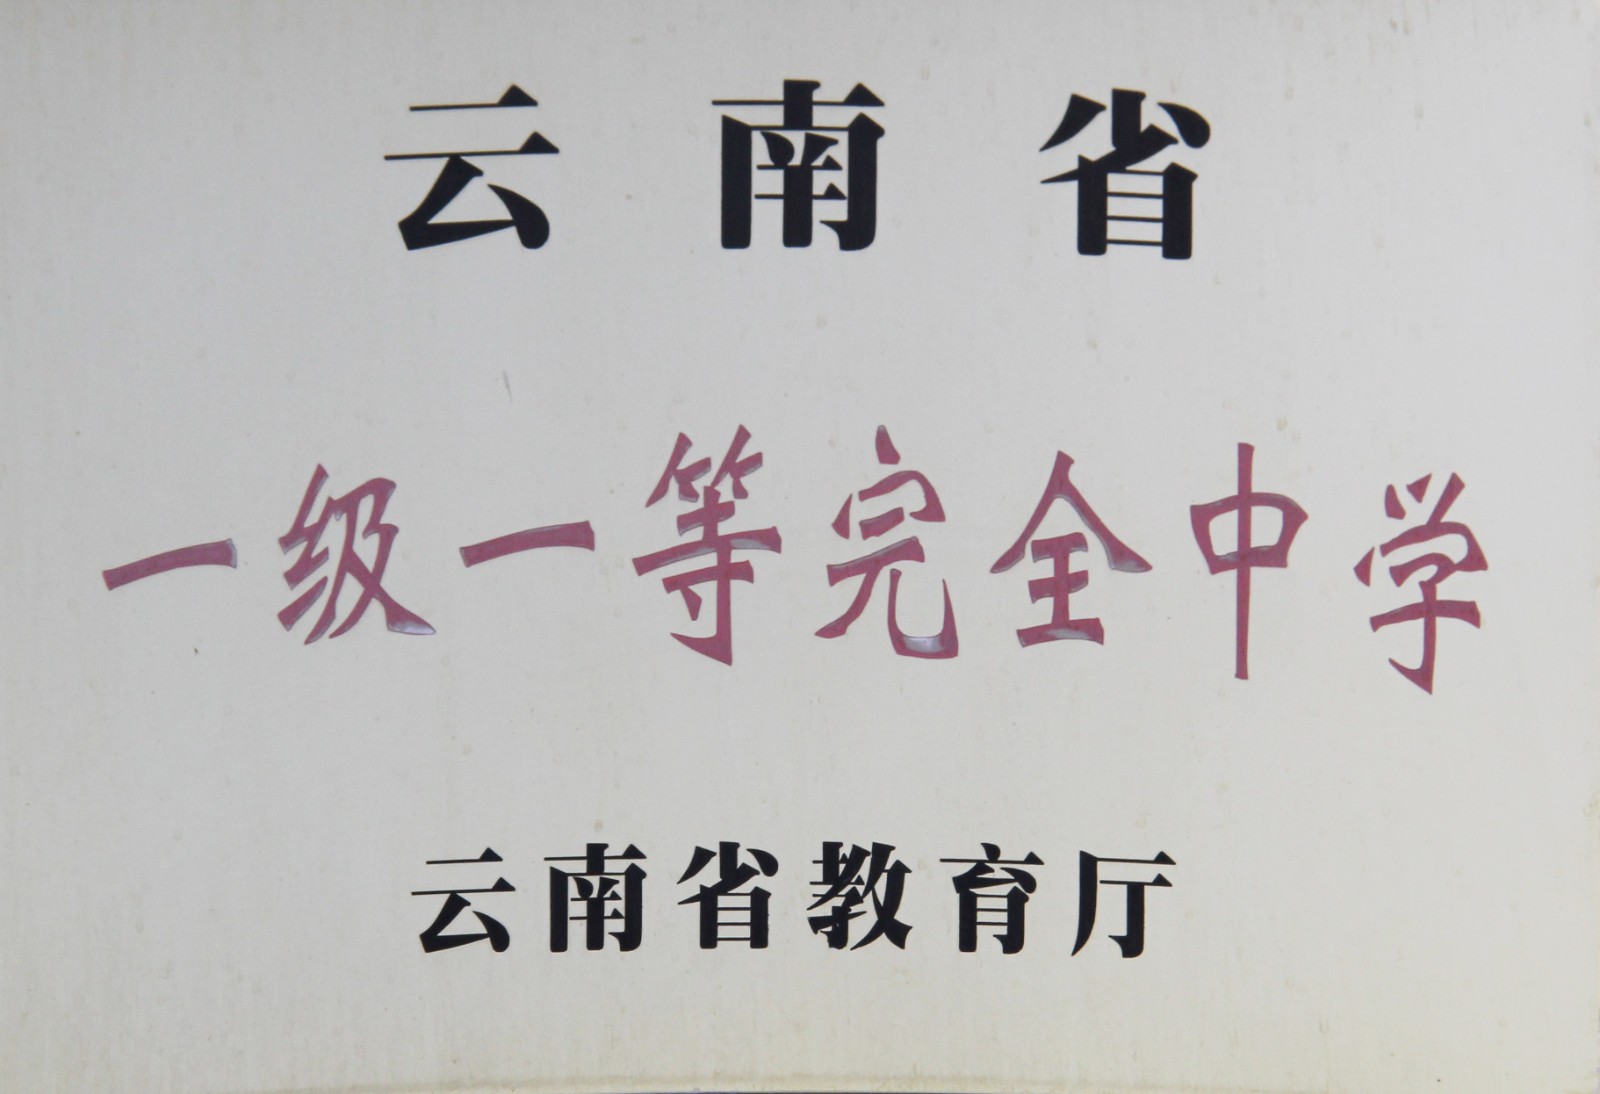 云南省
一级一等完全中学
云南省教育厅